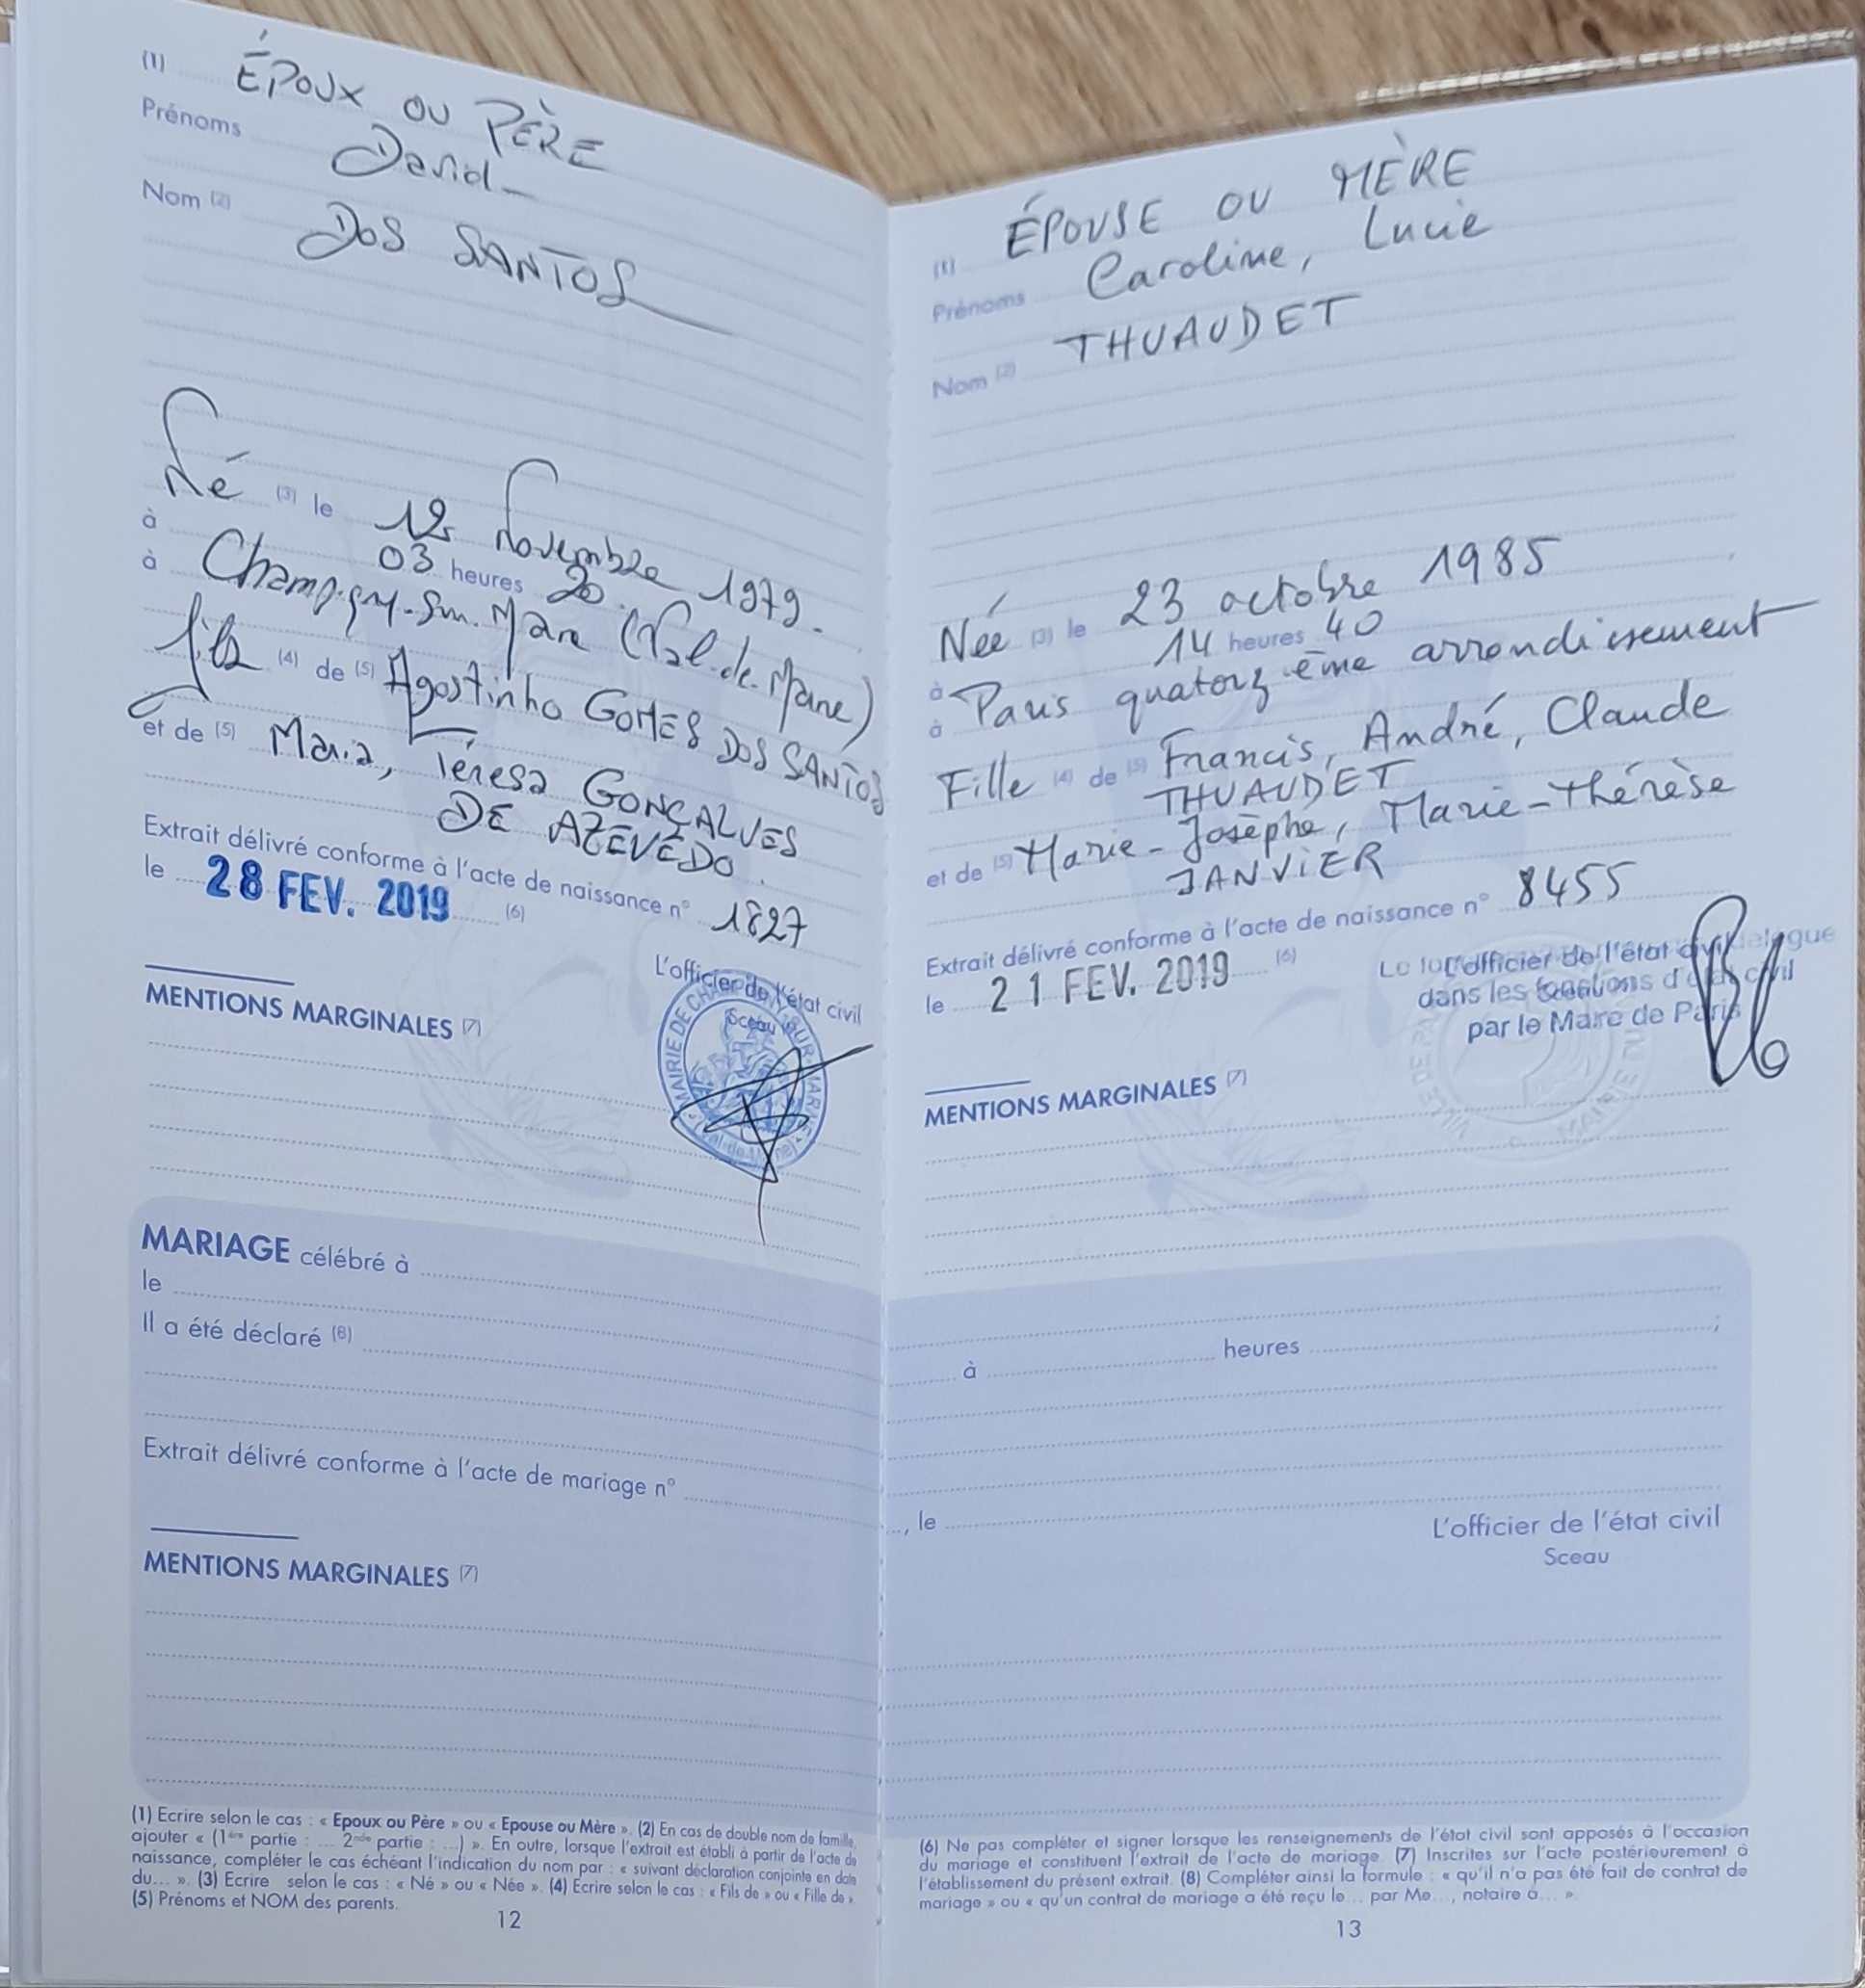 (1) ÉPOUX OU PÈRE
Prénoms David
Nom (2) DOS SANTOS
Né (3) le 12 Novembre 1979.
à 03 heures 20.
à Champigny-Sur-Marne (Val-de-Marne)
fils (4) de (5) Agostinho GOMES DOS SANTOS
et de (5) Maria, Téresa GONÇALVES
DE AZEVEDO.
Extrait délivré conforme à l'acte de naissance n° 1827
le 28 FEV. 2019 (6)
L'officier de l'état civil
Sceau
MAIRIE DE CHAMPIGNY-SUR-MARNE
(Val-de-Marne)
MENTIONS MARGINALES (7)
MARIAGE célébré à
le
Il a été déclaré (8)
Extrait délivré conforme à l'acte de mariage n°
MENTIONS MARGINALES (7)
(1) Ecrire selon le cas : « Epoux ou Père » ou « Epouse ou Mère ». (2) En cas de double nom de famille,
ajouter « (1ère partie : ... 2nde partie : ...) ». En outre, lorsque l'extrait est établi à partir de l'acte de
naissance, compléter le cas échéant l'indication du nom par : « suivant déclaration conjointe en date
du... ». (3) Ecrire selon le cas : « Né » ou « Née ». (4) Ecrire selon le cas : « Fils de » ou « Fille de ».
(5) Prénoms et NOM des parents.
12
(1) ÉPOUSE OU MÈRE
Prénoms Caroline, Lucie
Nom (2) THUAUDET
Née (3) le 23 octobre 1985
à 14 heures 40
à Paris quatorzième arrondissement
Fille (4) de (5) Francis, André, Claude
THUAUDET
et de (5) Marie-Josèphe, Marie-Thérèse
JANVIER
Extrait délivré conforme à l'acte de naissance n° 8455
le 21 FEV. 2019 (6)
L'officier de l'état civil
Sceau
dans les fonctions d'état civil
par le Maire de Paris
MENTIONS MARGINALES (7)
à heures ;
, le
L'officier de l'état civil
Sceau
(6) Ne pas compléter et signer lorsque les renseignements de l'état civil sont apposés à l'occasion
du mariage et constituent l'extrait de l'acte de mariage. (7) Inscrites sur l'acte postérieurement à
l'établissement du présent extrait. (8) Compléter ainsi la formule : « qu'il n'a pas été fait de contrat de
mariage » ou « qu'un contrat de mariage a été reçu le... par Me..., notaire à... ».
13